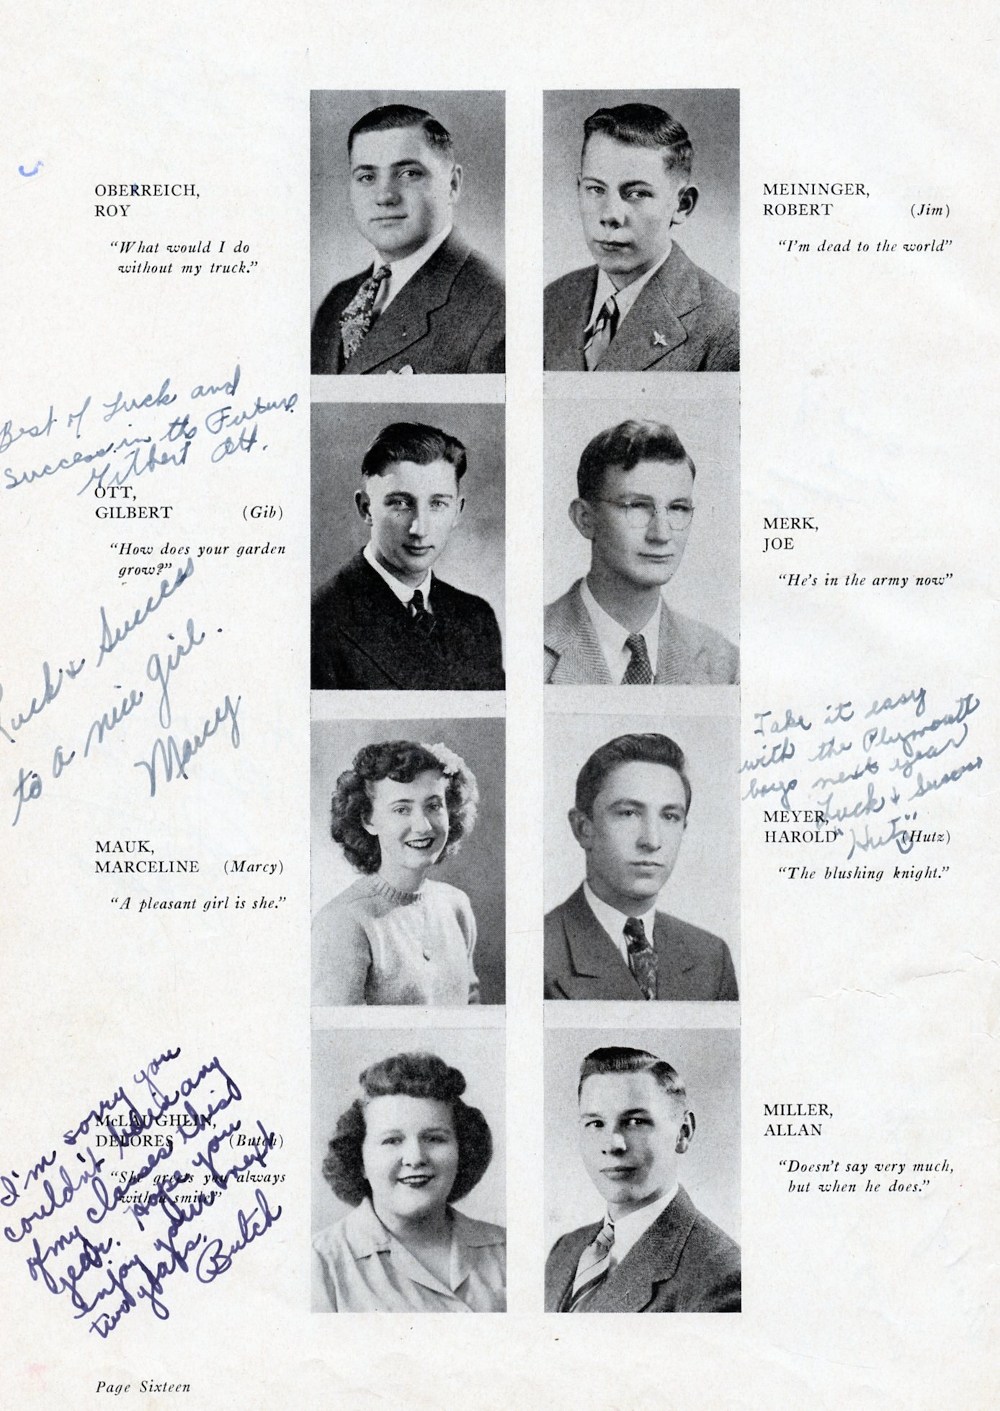 OBERREICH,
ROY
"What would I do
without my truck."
Best of Luck and
Success in the Future
Gilbert Ott.
OTT,
GILBERT (Gib)
"How does your garden
grow?"
Luck & Success
to a nice girl.
Marcy
MAUK,
MARCELINE (Marcy)
"A pleasant girl is she."
I'm sorry you
couldn't been in any
of my classes this
year. Hope you
enjoy your next
two years.
Butch
McLAUGHLIN,
DELORES (Butch)
"She greets you always
with a smile"
Page Sixteen
MEININGER,
ROBERT (Jim)
"I'm dead to the world"
MERK,
JOE
"He's in the army now"
Take it easy
with the Plymouth
boys next year
Luck & Success
"Hutz"
MEYER,
HAROLD (Hutz)
"The blushing knight."
MILLER,
ALLAN
"Doesn't say very much,
but when he does."